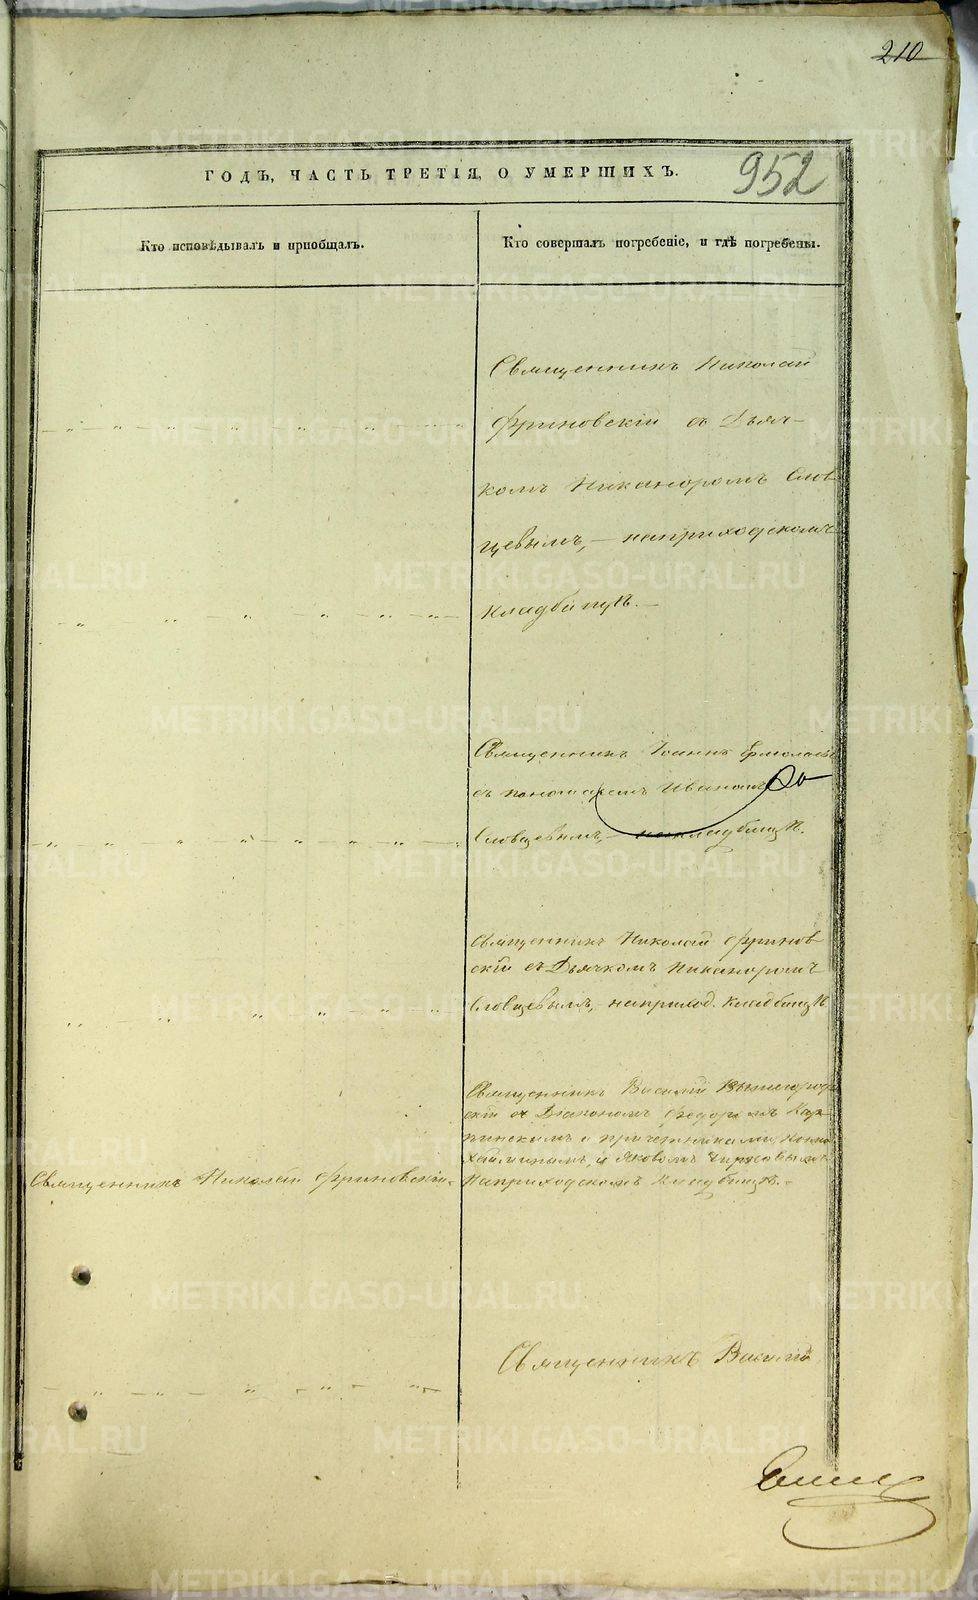 210
952
ГОДЪ, ЧАСТЬ ТРЕТІЯ, О УМЕРШИХЪ.
Кто исповѣдывалъ и пріобщалъ.
Кто совершалъ погребеніе, и гдѣ погребены.
Священникъ Николай
Фриновскій съ Дьяч-
комъ Никаноромъ Слов
цевымъ, – наприходскомъ
кладбищѣ. –
Священникъ Іоаннъ Ермолаевъ
съ пономаремъ Иваномъ
Словцевымъ, – накладбищѣ.
Священникъ Николай Фринов
скій съ Дьячкомъ Никаноромъ
Словцевымъ, наприход. кладбищѣ
Священникъ Василій
скій съ Діакономъ Федоромъ Кар-
пинскимъ и причетниками,
и Яковомъ
Наприходскомъ Кладбищѣ. –
Священникъ Николай Фриновскій.
Священникъ Василій
METRIKI.GASO-URAL.RU